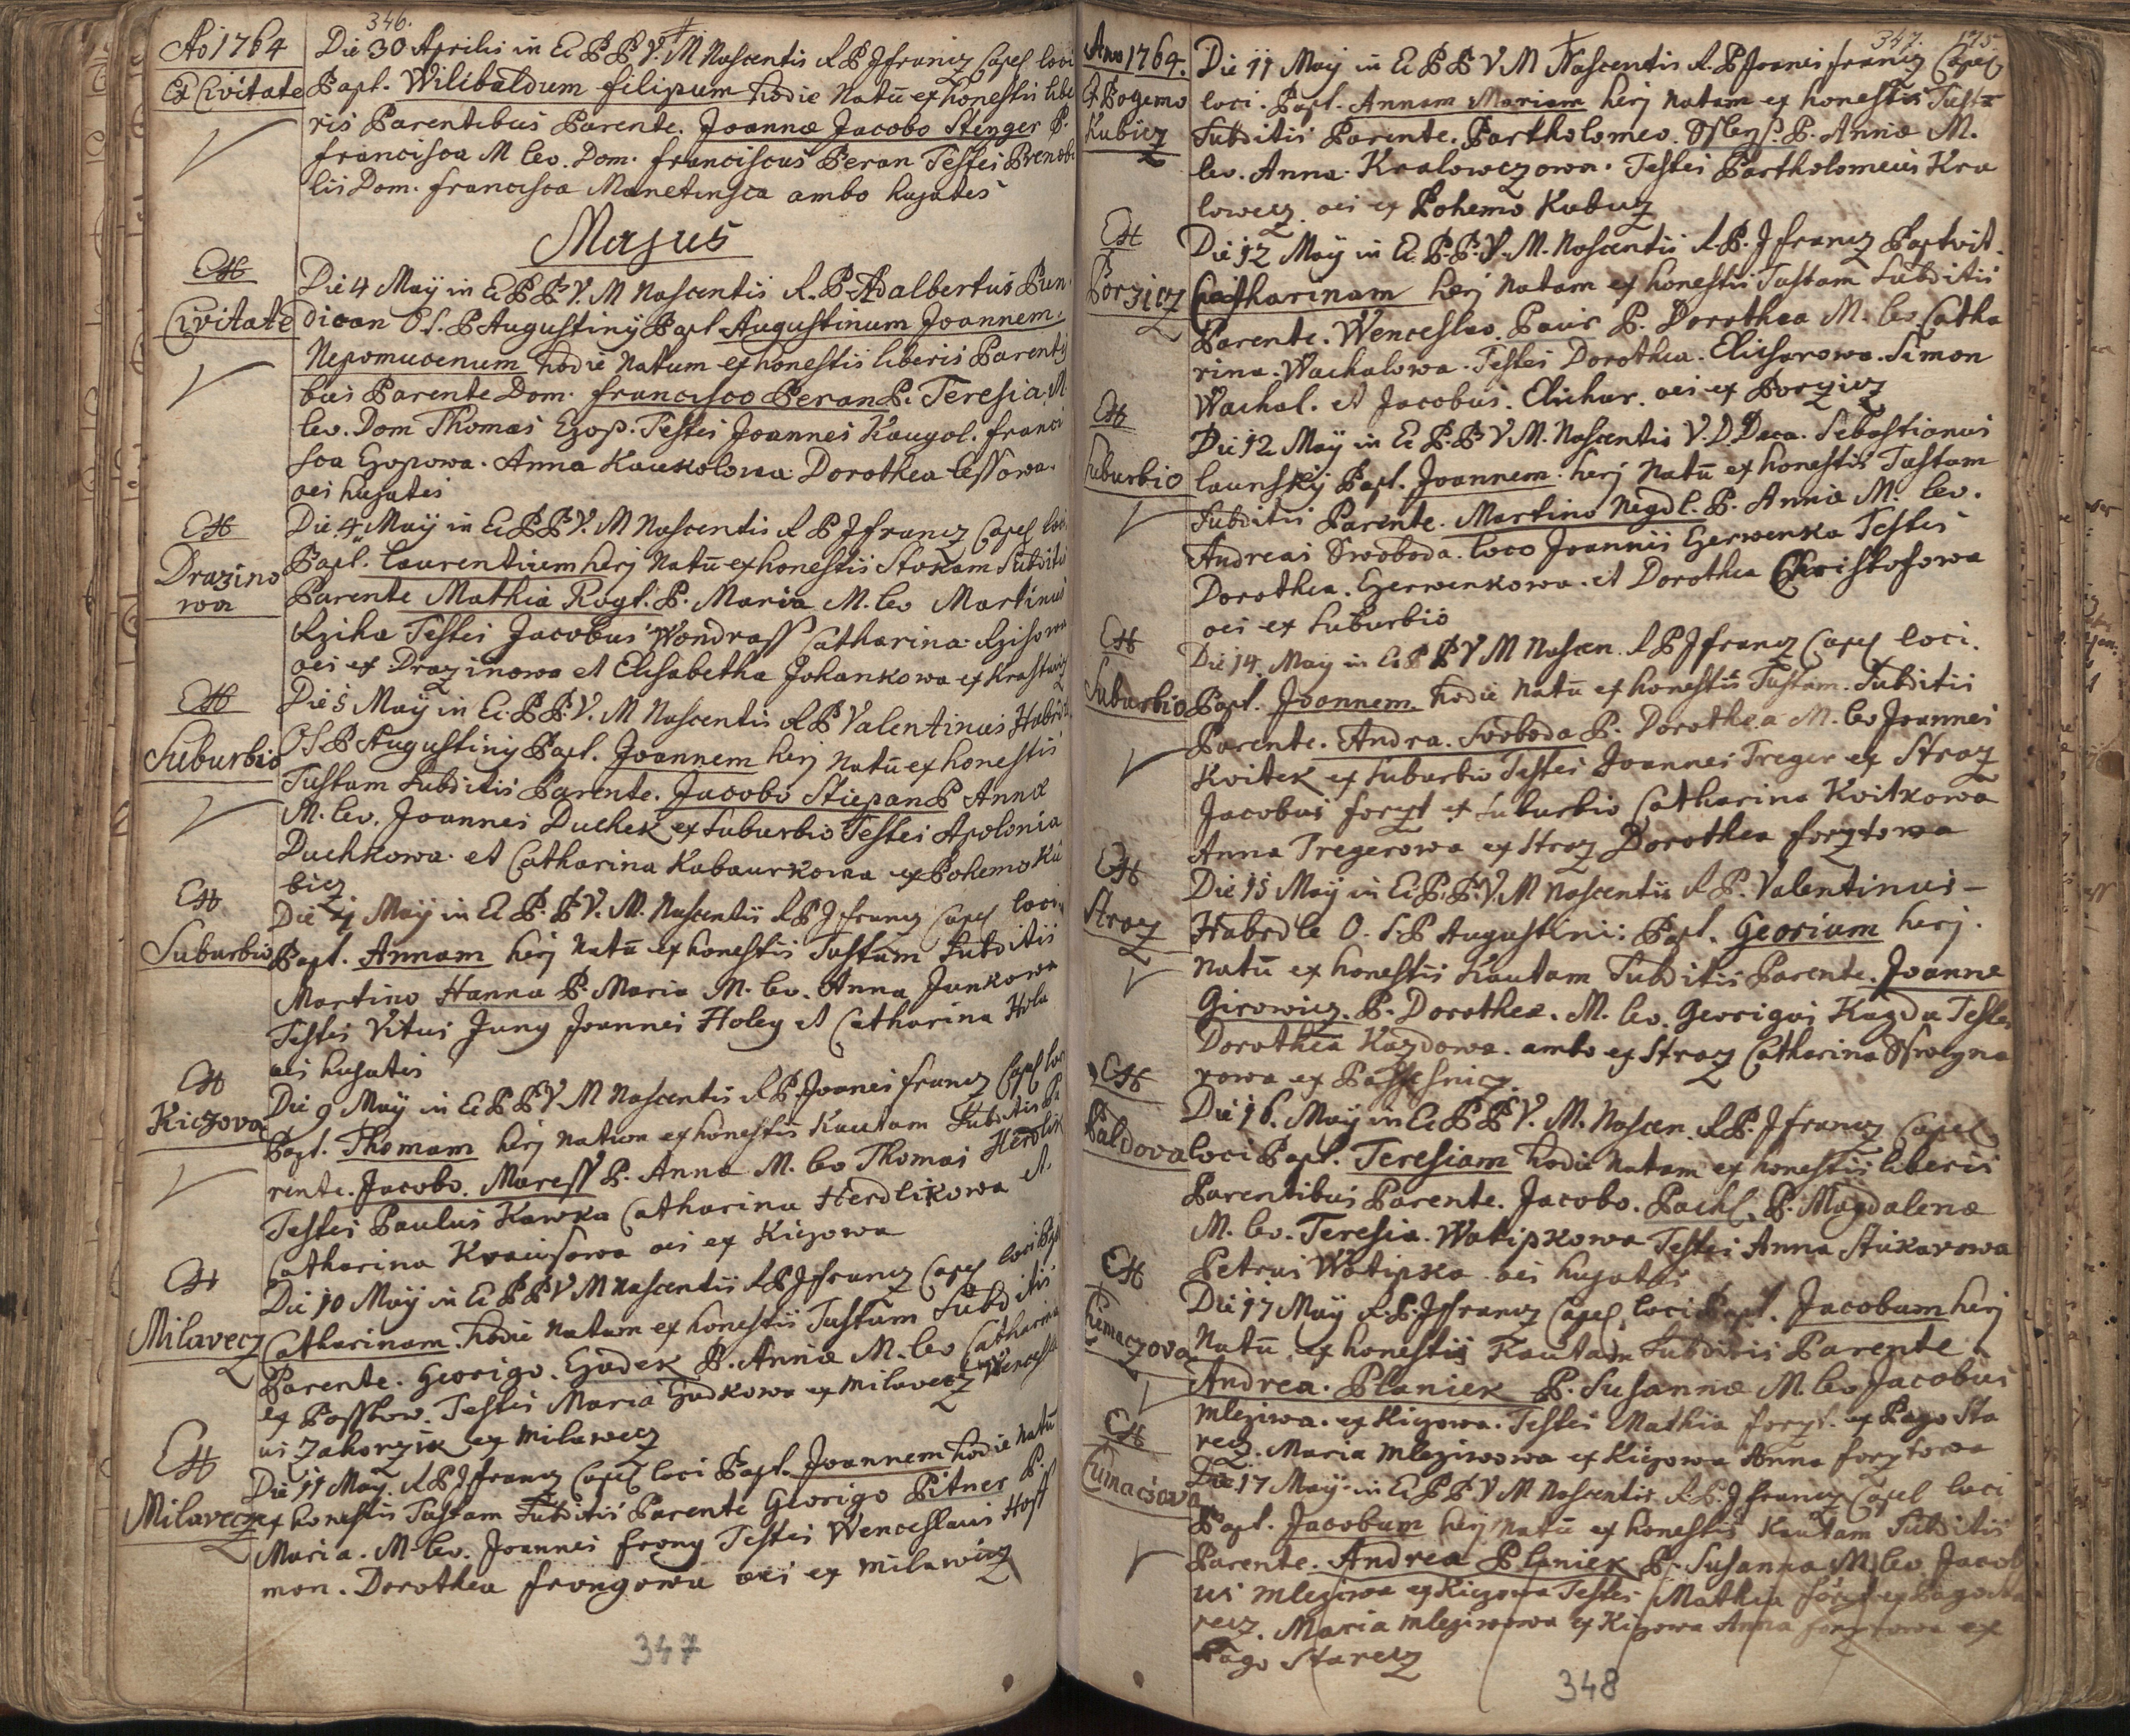 346.
Ao 1764
Ex Civitate
Die 30 Aprilis in Ec B B V. M Nascentis R P J francz Capel loci
Bapt. Wilibaldum filipum hodie Natū ex honestis libe
ris Parentibus Parente. Joannæ Jacobo Stenger P.
francisca M lev. Dom. franciscus Beran Testes Prenobi
lis Dom. francisca Manetinsca ambo hujates
Majus
Ex
Civitate
Die 4 May in Ec B B V. M Nascentis R. P Adalbertus Bun
dican O S. P Augustiny Bapt Augustinum Joannem.
Nepomucenum hodie Natum ex honestis liberis Parenti
bus Parente Dom. francisco Beran P. Teresia M.
lev. Dom Thomas Ezop. Testes Joannes Kaugol. franci
sca Ezopowa. Anna Kaukolowa Dorothea lessowa.
oes hujates
Ex
Drazino
wa
Die 4 May in Ec B B V. M Nascentis R P J francz Capel loci
Bapt. Laurentium herj Natū ex honestis Stokam Subditis
Parente Mathia Rogl. P. Maria M. lev Martinus
Rziha Testes Jacobus Wondrass Catharina Rzihowa
oes ex Drazinowa et Elisabetha Johankowa ex hrastawiz
Ex
Suburbio
Die 5 May in Ec. B B. V. M Nascentis R P Valentinus Habrdle
O S P Augustiny Bapt. Joannem herj Natū ex honestis
Tustam Subditis Parente. Jacobo Stiepan P Annæ
M. lev. Joannes Duchek ex Suburbio Testes Apolonia
Duchkowa et Catharina Kabaurkowa ex Bohemo Ku
bicz
Ex
Suburbio
Die May in Ec B. B V. M. Nascentis R P J francz Capel loci
Bapt. Annam herj Natū ex honestis Tustam Subditis
Martino Hanna P. Maria M. lev. Anna Junkowa
Testes Vitus Jung Joannes Holey et Catharina Hola
oes hujates
Ex
Kiczova
Die 9 May in Ec B B V M Nascentis R P Joanes francz Capel loci
Bapt. Thomam herj Natum ex honestis Kautam Subditis Pa
rente. Jacobo. Maress P. Anna M. lev Thomas Herdlik
Testes Paulus Kawka Catharina Herdlikowa et
Catharina Kraicsowa oes ex Kiczowa
Ex
Milavecz
Die 10 May in Ec B B V M Nascentis R P J francz Capel loci Bap
Catharinam. hodie Natam ex honestis Tustam Subditis
Parente. Georigo. Gadek P. Annæ M. lev Catharina
ex Bosskow. Testes Maria Gadkowa ex Milavecz Wencesla
us Zahorzik ex Milawecz
Ex
Milavecz
Die 11 May. R P J francz Capel loci Bapt. Joannem hodie Natū
ex honestis Tustam Subditis Parente Georigo Pitner P.
Maria. M lev. Joannes frong Testes Wenceslaus Hoff
mon. Dorothea frongowa oes ex Milawicz
347
347. 175.
Ano 1764.
Ex Bohemo
Kubicz
Die 11 May in Ec B B V M Nascentis R. P Joanes francz Capel
loci. Bapt. Annam Mariam herj Natam ex honestis Tust
Subditis Parente. Bartholomeo. P. Annæ M.
lev. Anna Kralowczowa. Testes Bartholomeus Kra
lowecz oes ex Bohemo Kubicz
Ex
Borzicz
Die 12 May in Ec. B. B. V. M. Nascentis R. P. J francz Baptvit
Catharinam herj Natam ex honestis Tustam Subditis
Parente. Wenceslao Pavir P. Dorothea M. lev Catha
rina. Wachalowa. Testes Dorothea. Elicharowa. Simon
Wachal. et Jacobus. Elichar. oes ex Borzicz
Ex
Suburbio
Die 12 May in Ec B. B V M. Nascentis V. D Deca. Sebastianus
launsky Bapt. Joannem. herj Natū ex honestis Tustam
Subditis Parente. Martino Negdl. P. Annæ M. lev.
Andreas Swoboda. loco Joannis Czerwenka Testes
Dorothea. Czerwenkowa. et Dorothea Christofowa
oes ex Suburbio
Ex
Suburbio
Die 14. May in Ec B B V M Nascen. R P J francz Capel loci.
Bapt. Joannem hodie Natū ex honestis Tustam. Subditis
Parente. Andra. Swoboda P. Dorothea M. lev Joannes
Kvitek ex Suburbio Testes Joannes Treger ex Straz
Jacobus forzt ex Suburbio Catharina Kvitkowa
Anna Tregerowa ex Straz Dorothea forztowa
Ex
Straz
Die 15 May in Ec. B. B. V. M Nascentis R P. Valentinus
Habrdle O. S. P Augustini: Bapt. Georium herj.
Natū ex honestis Kautam Subditis Parente. Joanne
Girowicz. P. Dorothea. M. lev. Georigus Kazda Testes
Dorothea Kazdowa. ambo ex Straz Catharina
rowa ex Passesnicz.
Ex
Baldova
Die 16. May in Ec B B V. M. Nascen. R P. J francz Capel
loci Bapt. Teresiam hodie Natam ex honestis liberis
Parentibus Parente. Jacobo. Pachl. P. Magdalenæ
M. lev. Teresia. Watipkowa Testes Anna Stukarowa
Petrus Watipka oes hujates
Ex
Tiemaczova
Die 17 May R. P. J francz Capel loci Bapt. Jacobum herj
Natū ex honestis Kautam Subditis Parente
Andrea. Planiek P. Susannæ M. lev Jacobus
Mleziwa. ex Kiczowa. Testes Mathia forzt. ex Pago Sta
recz. Maria Mleziwowa ex Kiczowa Anna forztowa
Ex
Cumacsova
Die 17 May in Ec B B V M Nascentis R. P. J francz Capel loci
Bapt. Jacobum herj Natū ex honestis Kautam Subditis
Parente. Andrea Planiek P. Susanna M lev. Jacob
us Mleziwa ex Kiczowa Testes Mathia forzt ex Pago Sta
recz. Maria Mleziwowa ex Kiczowa Anna forztowa ex
Pago Starecz
348